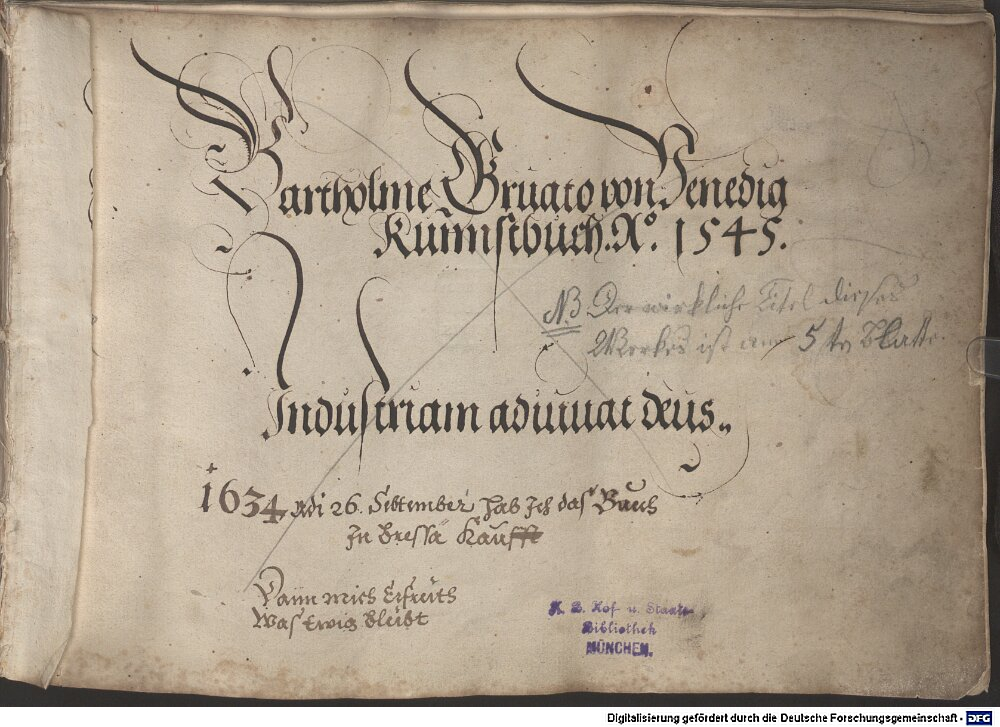 Bartholme Gruato von Venedig
Kunnstbuch. Aº. 1545.
NB Der wirkliche Titel dieses
Werkes ist am 5ten Blatte.
Industriam adiuuat deus„
1634 Adi 26. Settember hab Ich das Buech
In Bressa Kaufft
Dann mich Erfreith
Was Ewig bleibt
K. B. Hof- u. Staats-
Bibliothek
MÜNCHEN.
Digitalisierung gefördert durch die Deutsche Forschungsgemeinschaft - DFG